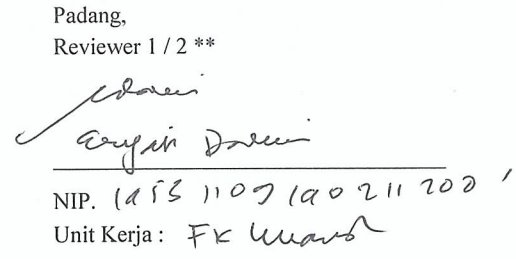 Padang,
Reviewer 1 / 2 **
Eryati Darwin
NIP. 1953 1109 1980 211 200 1
Unit Kerja : FK Unand